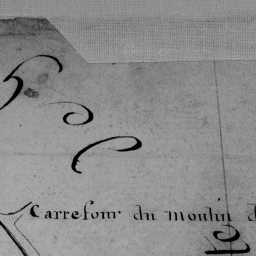 Carrefour du moulin d